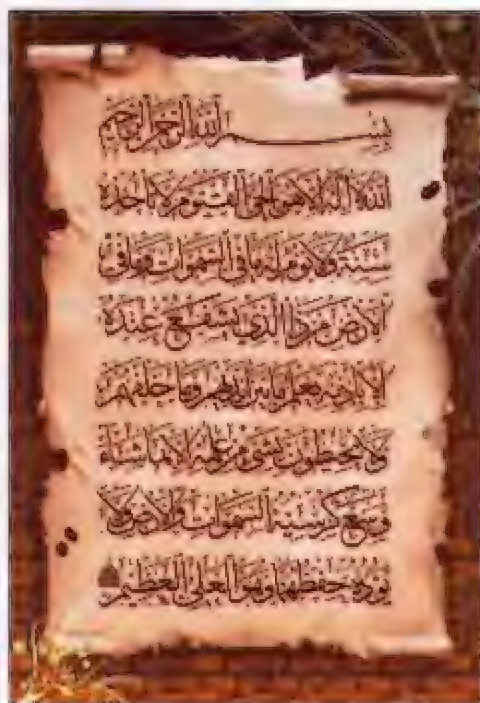 بِسْمِ اللَّهِ الرَّحْمَنِ الرَّحِيمِ
اللَّهُ لَا إِلَهَ إِلَّا هُوَ الْحَيُّ الْقَيُّومُ لَا تَأْخُذُهُ
سِنَةٌ وَلَا نَوْمٌ لَهُ مَا فِي السَّمَوَاتِ وَمَا فِي
الْأَرْضِ مَنْ ذَا الَّذِي يَشْفَعُ عِنْدَهُ
إِلَّا بِإِذْنِهِ يَعْلَمُ مَا بَيْنَ أَيْدِيهِمْ وَمَا خَلْفَهُمْ
وَلَا يُحِيطُونَ بِشَيْءٍ مِنْ عِلْمِهِ إِلَّا بِمَا شَاءَ
وَسِعَ كُرْسِيُّهُ السَّمَوَاتِ وَالْأَرْضَ وَلَا
يَئُودُهُ حِفْظُهُمَا وَهُوَ الْعَلِيُّ الْعَظِيمُ